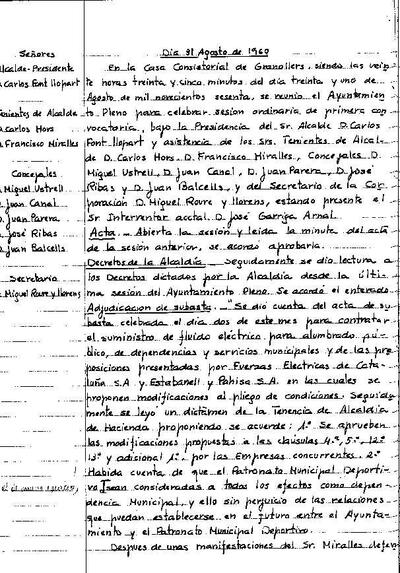 Señores
Alcalde-Presidente
Carlos Font llopart
Tenientes de Alcalde
Carlos Hors
Francisco Miralles
Concejales
Miguel Ustrell
Juan Canal
D. Juan Parera
José Ribas
D. Juan Balcells
Secretario
Miguel Roure y llorens
Dia 31 Agosto de 1960
En la Casa Consistorial de Granollers, siendo las vein
te horas treinta y cinco minutos del día treinta y uno de
Agosto de mil novecientos sesenta, se reunió el Ayuntamien
to Pleno para celebrar sesión ordinaria de primera con
vocatoria, bajo la Presidencia del Sr. Alcalde D. Carlos
Font llopart y asistencia de los srs. Tenientes de Alcal-
de D. Carlos Hors, D. Francisco Miralles, Concejales D.
Miguel Ustrell, D. Juan Canal, D. Juan Parera, D. José
Ribas y D. Juan Balcells, y del Secretario de la Cor
poracion D. Miguel Roure y llorens, estando presente el
Sr Interventor acctal. D. José Garriga Arnal.
Acta.- Abierta la sesión y leida la minuta del acta
de la sesión anterior, se acordó aprobarla.
Decretos de la Alcaldía.- Seguidamente se dio lectura a
los Decretos dictados por la Alcaldía desde la últi-
ma sesión del Ayuntamiento Pleno. Se acordó el enterado
Adjudicacion de subasta.- "Se dió cuenta del acta de su
basta celebrada el día dos de este mes para contratar
el suministro de fluido eléctrico para alumbrado pú-
blico, de dependencias y servicios municipales y de las pro
posiciones presentadas por Fuerzas Electricas de Cata-
luña S.A y Estabanell y Pahisa S.A. en las cuales se
proponen modificaciones al pliego de condiciones. Seguida
mente se leyó un dictámen de la Tenencia de Alcaldía
de Hacienda proponiendo se acuerde: 1º Se aprueben
las modificaciones propuestas a las cláusulas 4ª, 5ª, 12ª
13ª y adicional 1ª, por las Empresas concurrentes. 2º
Habida cuenta de que el Patronato Municipal Deporti-
vo sean consideradas a todos los efectos como depen-
dencia Municipal, y ello sin perjuicio de las relaciones
que puedan establecerse en el futuro entre el Ayunta-
miento y el Patronato Municipal Deportivo.
Despues de unas manifestaciones del Sr. Miralles defen